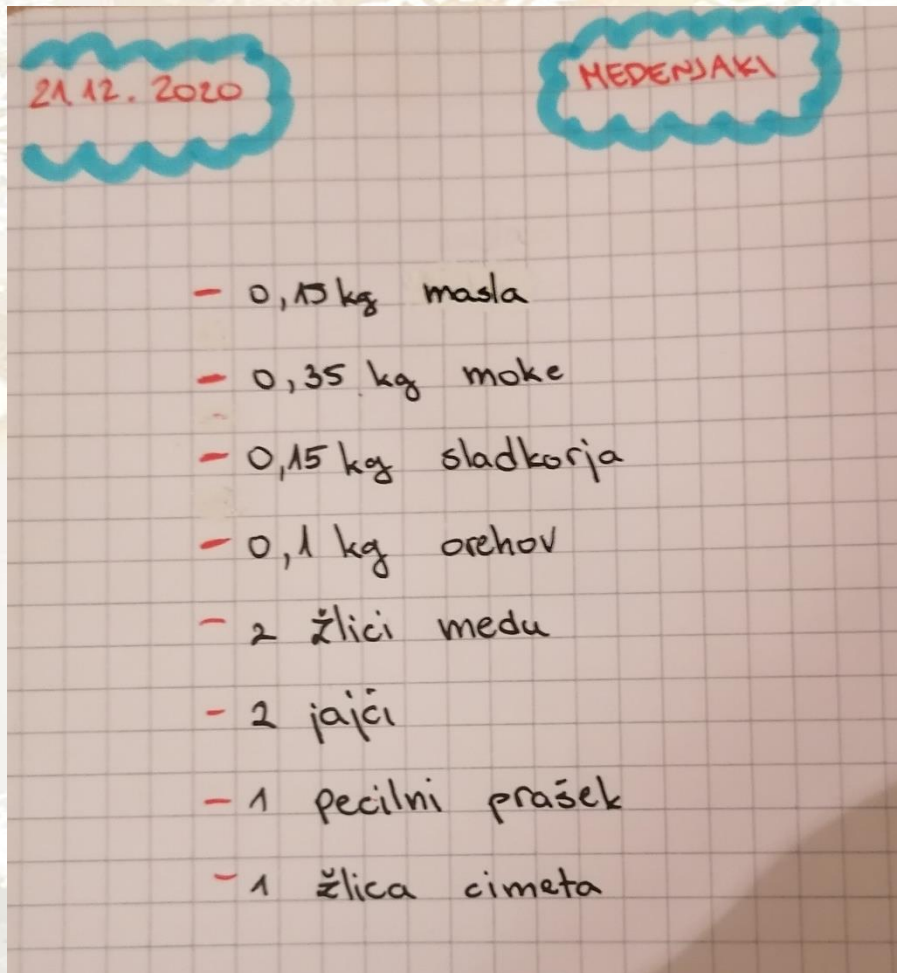 21.12.2020
MEDENJAKI
- 0,15 kg masla
- 0,35 kg moke
- 0,15 kg sladkorja
- 0,1 kg orehov
- 2 žlici medu
- 2 jajči
- 1 pecilni prašek
- 1 žlica cimeta